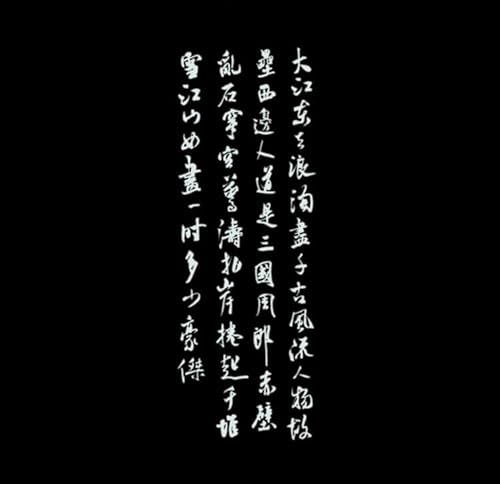 大江东去浪淘盡千古風流人物故
壘西邊人道是三國周郎赤壁
亂石穿空驚濤拍岸捲起千堆
雪江山如畫一时多少豪傑